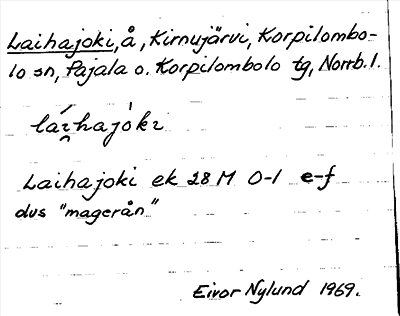 Laihajoki, å, Kirnujärvi, Korpilombo-
lo sn, Pajala o. Korpilombolo tg, Norrb. l.
láɪ̯hajòkɪ
Laihajoki ek 28 M 0-1 e-f
dvs "magerån"
Eivor Nylund 1969.